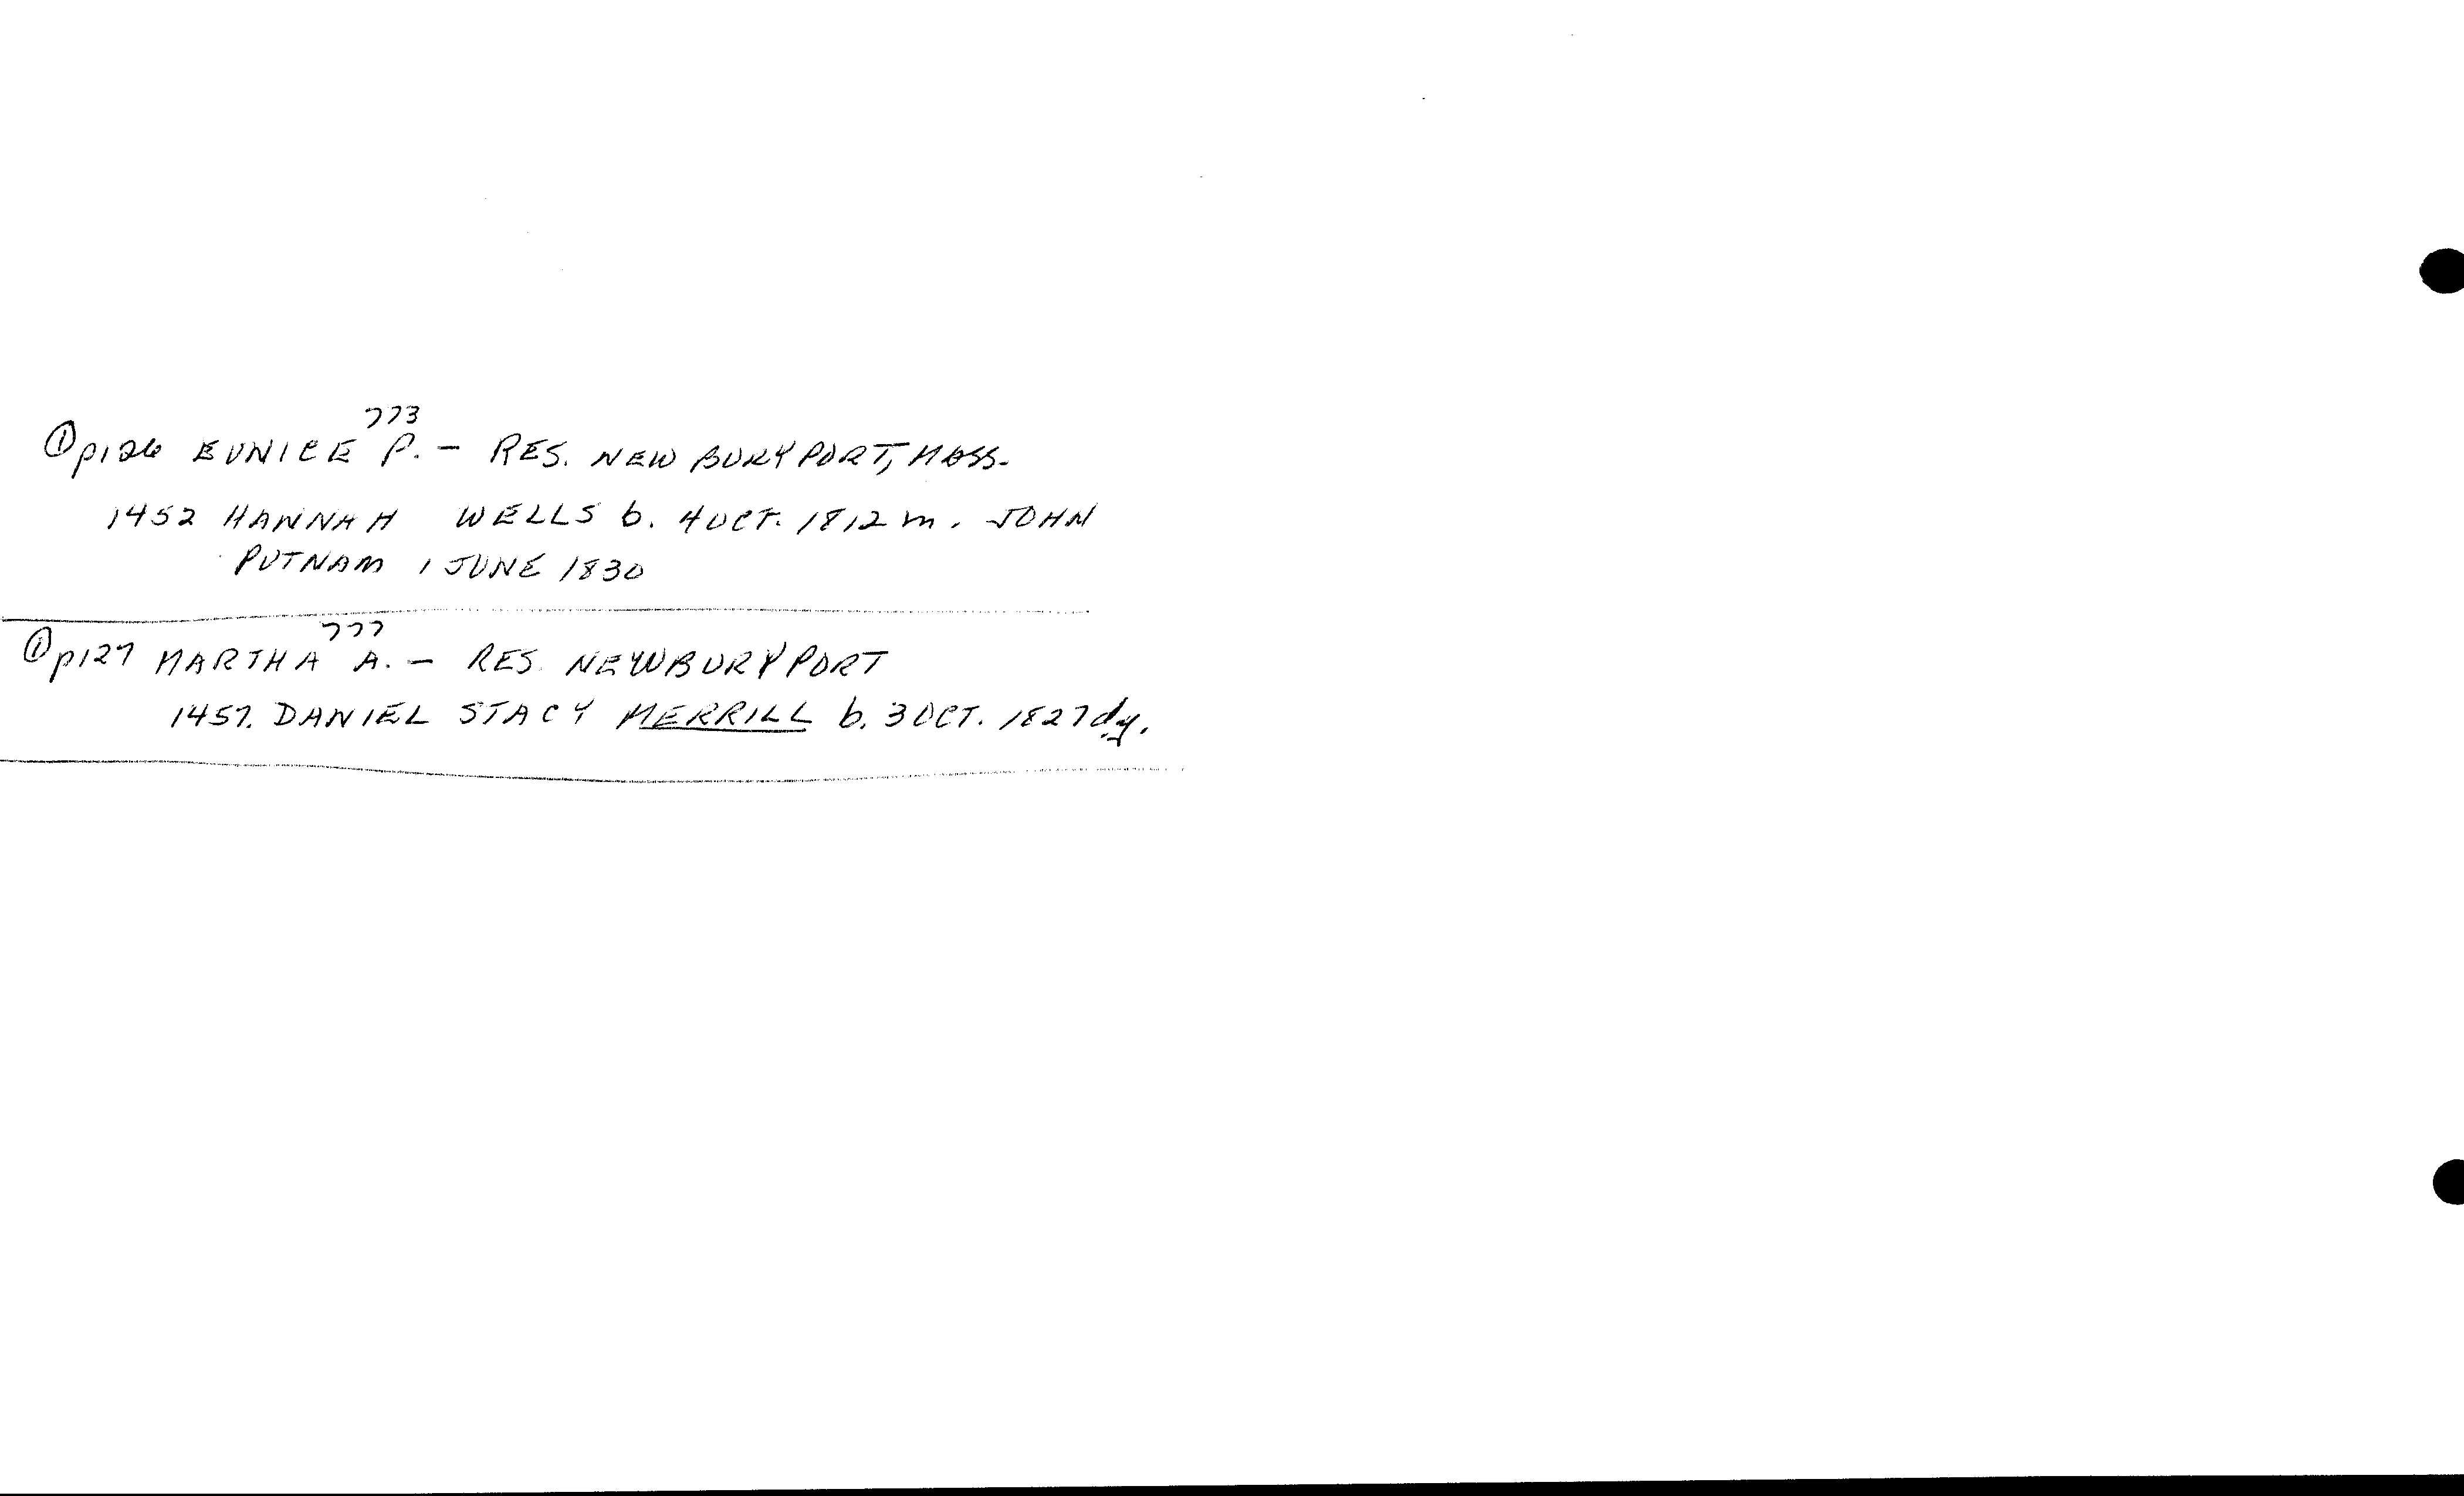 773
① p126 EUNICE P. - RES. NEWBURYPORT, MASS.
1452 HANNAH WELLS b. 4 OCT. 1812 m. JOHN
PUTNAM 1 JUNE 1830
777
① p127 MARTHA A. - RES. NEWBURYPORT
1457. DANIEL STACY MERRILL b. 3 OCT. 1827 dy.